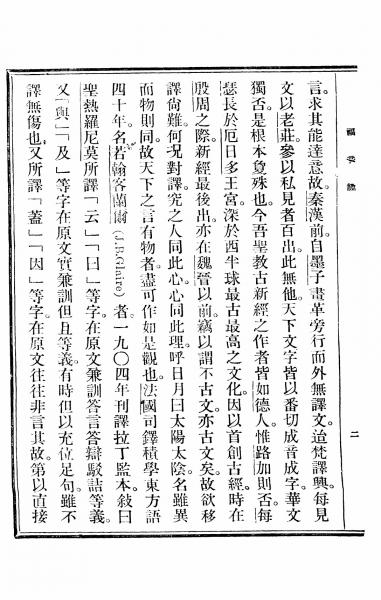 福音議
二
言。求其能達意。故秦漢前。自墨子畫革旁行而外。無譯文。迨梵譯興。每見
文以老莊。參以私見者百出。此無他。天下文字。皆以番切成音成字。華文
獨否。是根本敻殊也。今吾聖教古新經之作者。皆如德人。惟路加則否。每
瑟長於厄日多王宮。深於西半球最古最高之文化。因以首創古經。時在
殷周之際。新經最後出。亦在魏晉以前。竊以謂不古文。亦古文矣。故欲移
譯尙難。何況對譯。究之人同此心。心同此理。呼日月曰太陽太陰。名雖異
而物則同。故天下之言有物者。盡可作如是觀也。法國司鐸積學東方語
四十年。名若翰客蘭爾(J.B.Glaire)者。一九〇四年刊譯拉丁監本。敍曰
聖熱羅尼莫所譯「云」「曰」等字。在原文兼訓答言答辯駁詰等義。
又「與」「及」等字。在原文實兼訓但且等義。有時但以充位足句。雖不
譯無傷也。又所譯「蓋」「因」等字。在原文往往非言其故。第以直接